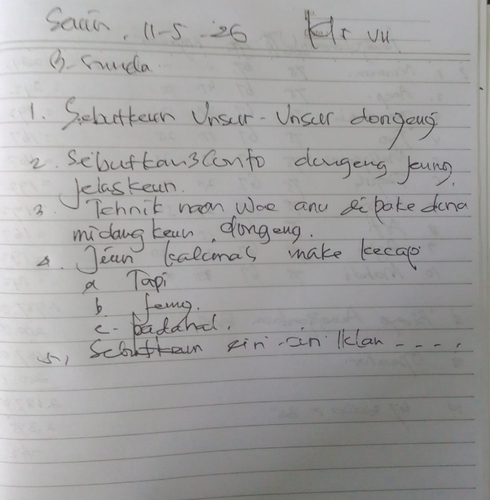 Senin, 11-5-26 Kls VII
B. Sunda
1. Sebutkeun Unsur-Unsur dongeng
2. Sebutkan 3 Conto dongeng jeung
jelaskeun.
3. Tehnik naon wae anu dipake dina
midangkeun dongeng.
4. Jieun kalimas make kecap
a Tapi
b. jeung.
c. padahal.
5. Sebutkeun ciri-ciri Iklan ----.